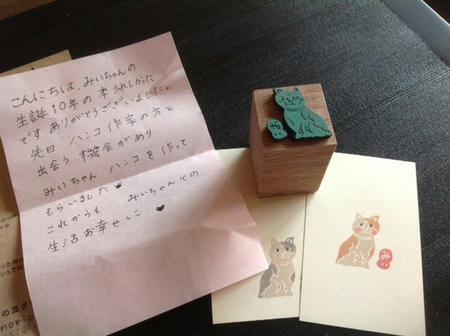 こんにちは、みいちゃんの
生誕10年の本うれしかった
です ありがとうございました。
先日 ハンコ作家の方と
出会う機会があり
みいちゃん ハンコを作って
もらいました
これからも みいちゃんとの
生活お幸せに
み